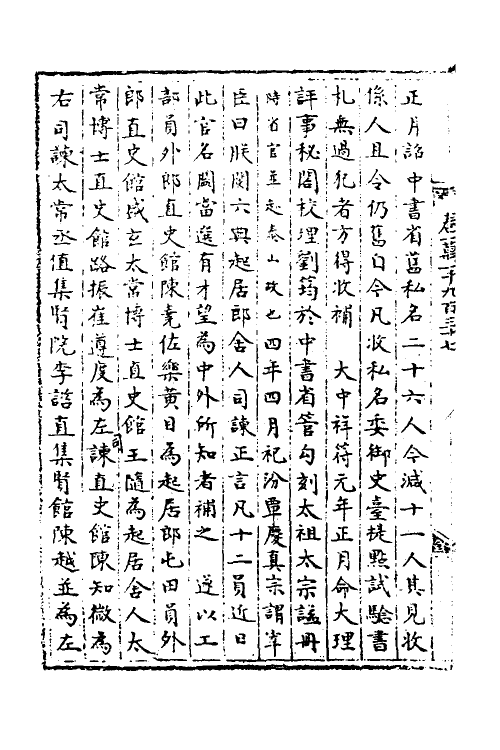 正月詔中書省舊私名二十六人今減十一人其見收
係人且令仍舊自今凡收私名委御史臺提點試驗書
札無過犯者方得收補　大中祥符元年正月命大理
評事秘閣校理劉筠於中書省管勾刻太祖太宗謚冊
時省官並起泰山故也四年四月祀汾覃慶真宗謂宰
臣曰朕閱六典起居郎舍人司諫正言凡十二員近日
此官名闕當選有才望為中外所知者補之　遂以工
部員外郎直史館陳堯佐樂黃目為起居郎屯田員外
郎直史館盛玄太常博士直史館王隨為起居舍人太
常博士直史館路振崔遵度為左司諫直史館陳知微為
右司諫太常丞值集賢院李諮直集賢館陳越並為左
卷一萬一千九百三十七